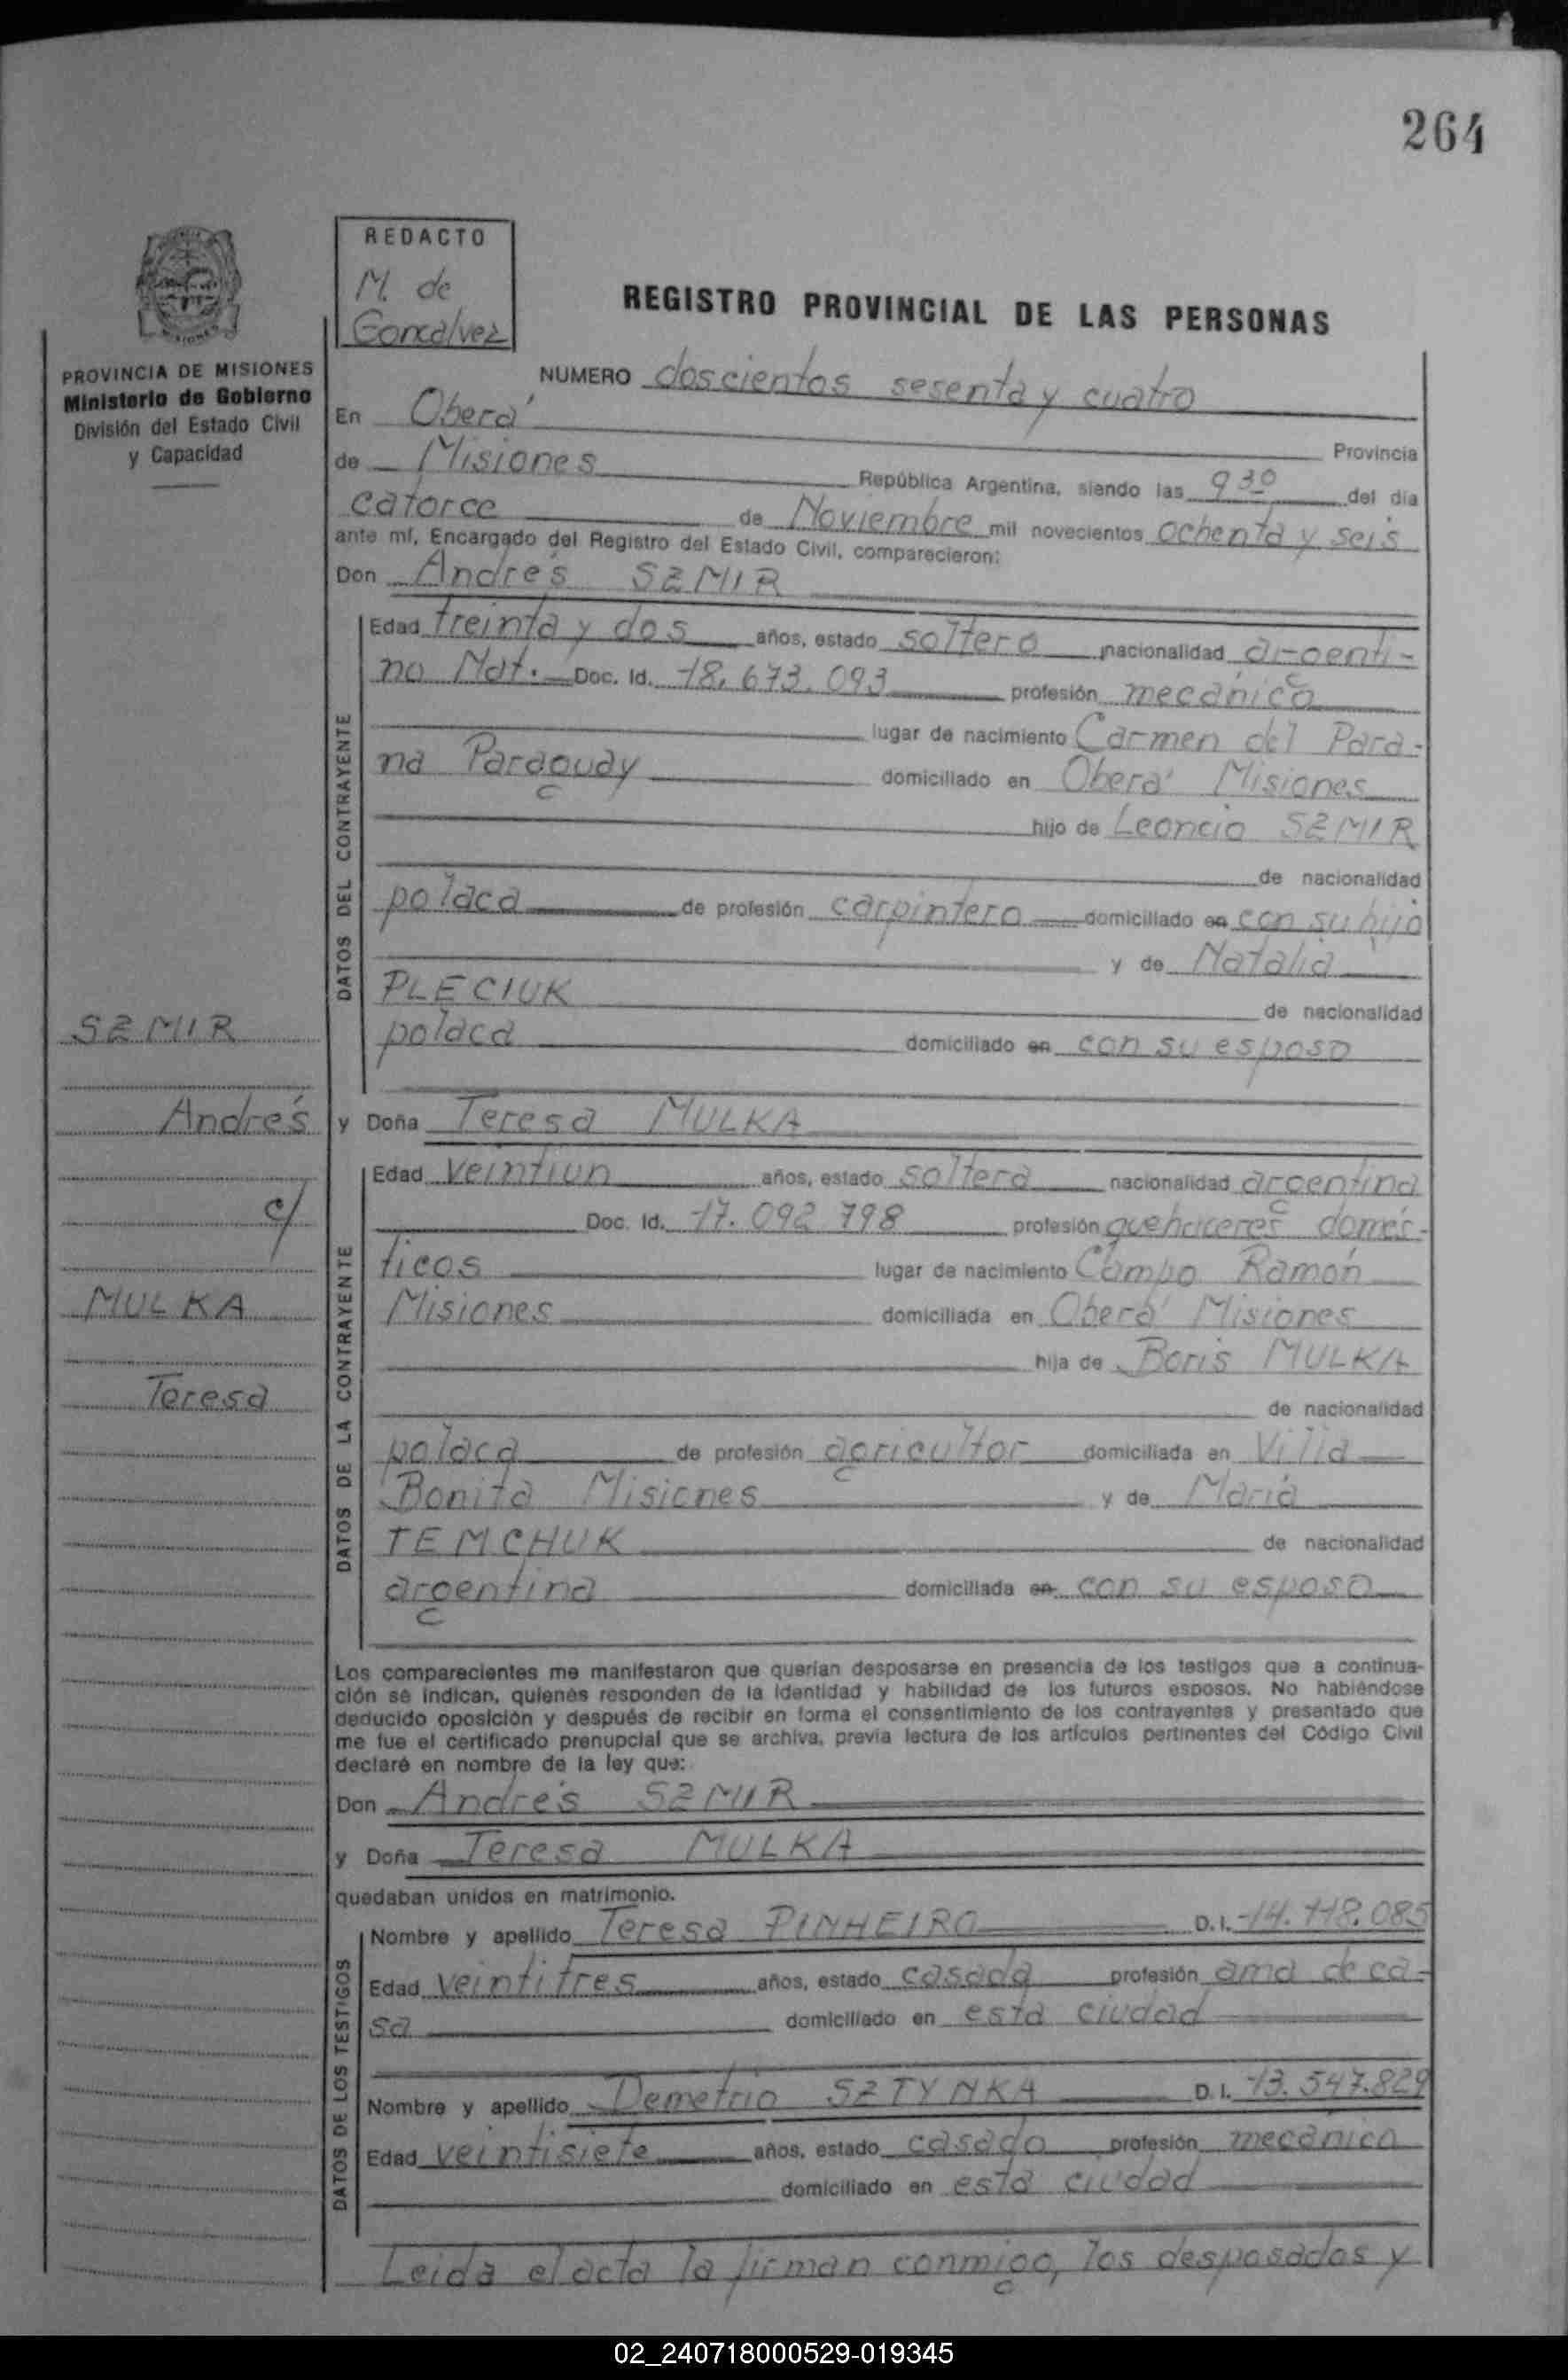 264
REDACTO
M. de
Goncalvez
REGISTRO PROVINCIAL DE LAS PERSONAS
PROVINCIA DE MISIONES
Ministerio de Gobierno
División del Estado Civil
y Capacidad
NUMERO doscientos sesenta y cuatro
En Oberá Provincia
de Misiones República Argentina, siendo las 9 30 del día
catorce de Noviembre mil novecientos ochenta y seis
ante mí, Encargado del Registro del Estado Civil, comparecieron:
Don Andrés SZMIR
DATOS DEL CONTRAYENTE
Edad treinta y dos años, estado soltero nacionalidad argenti-
no Nat. Doc. Id. 18.673.093 profesión mecánico
lugar de nacimiento Carmen del Para-
na Paraguay domiciliado en Oberá Misiones
hijo de Leoncio SZMIR
de nacionalidad
polaca de profesión carpintero domiciliado en con su hijo
y de Natalia
PLECIUK de nacionalidad
polaca domiciliado en con su esposo
SZMIR
Andrés
c/
MULKA
Teresa
y Doña Teresa MULKA
DATOS DE LA CONTRAYENTE
Edad veintiun años, estado soltera nacionalidad argentina
Doc. Id. 17.092.798 profesión quehaceres domés-
ticos lugar de nacimiento Campo Ramón
Misiones domiciliada en Oberá Misiones
hija de Boris MULKA
de nacionalidad
polaca de profesión agricultor domiciliada en Villa
Bonita Misiones y de María
TEMCHUK de nacionalidad
argentina domiciliada en con su esposo
Los comparecientes me manifestaron que querían desposarse en presencia de los testigos que a continua-
ción se indican, quienes responden de la identidad y habilidad de los futuros esposos. No habiéndose
deducido oposición y después de recibir en forma el consentimiento de los contrayentes y presentado que
me fue el certificado prenupcial que se archiva, previa lectura de los artículos pertinentes del Código Civil
declaré en nombre de la ley que:
Don Andrés SZMIR
y Doña Teresa MULKA
quedaban unidos en matrimonio.
DATOS DE LOS TESTIGOS
Nombre y apellido Teresa PINHEIRO D. I. 14.118.085
Edad veintitres años, estado casada profesión ama de ca-
sa domiciliado en esta ciudad
Nombre y apellido Demetrio SZTYNKA D. I. 13.547.829
Edad veintisiete años, estado casado profesión mecánico
domiciliado en esta ciudad
Leida el acta la firman conmigo, los desposados y
02_240718000529-019345